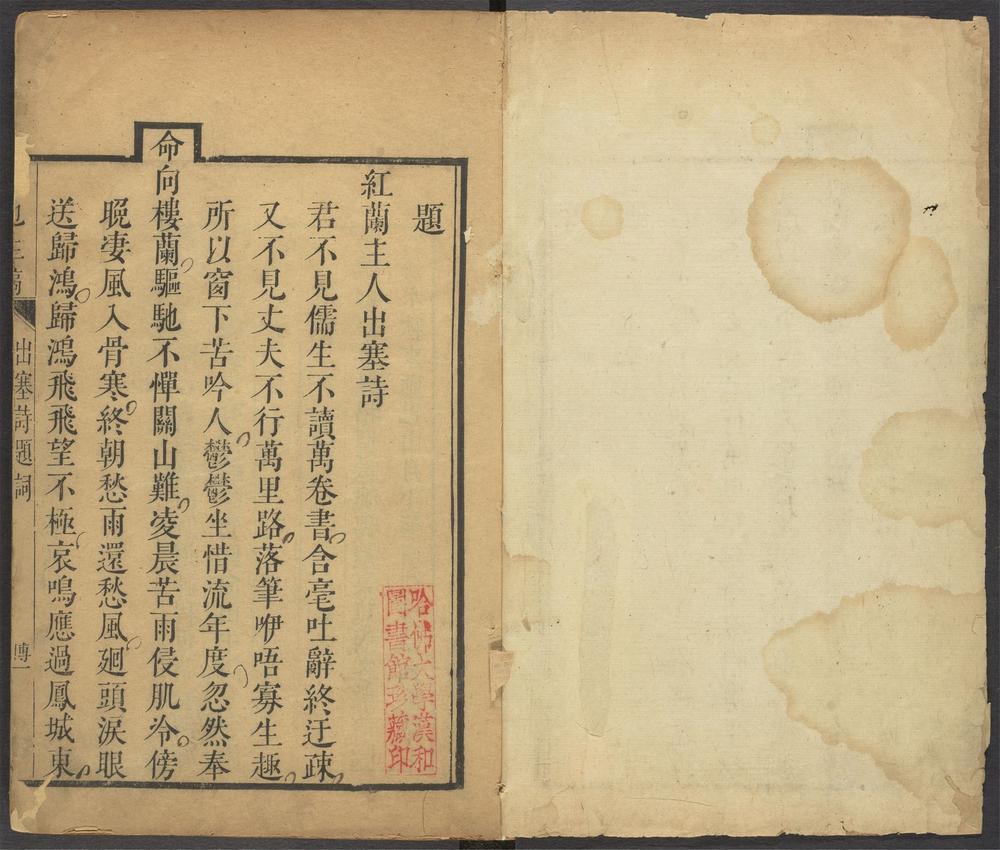 題
紅蘭主人出塞詩
君不見儒生不讀萬卷書含毫吐辭終迂疎
又不見丈夫不行萬里路落筆咿唔寡生趣
所以窗下苦吟人鬱鬱坐惜流年度忽然奉
命向樓蘭驅馳不憚關山難凌晨苦雨侵肌冷傍
晚凄風入骨寒終朝愁雨還愁風廻頭淚眼
送歸鴻歸鴻飛飛望不極哀鳴應過鳳城東
出塞詩題詞
傳一
哈佛大學漢和
圖書館珍藏印